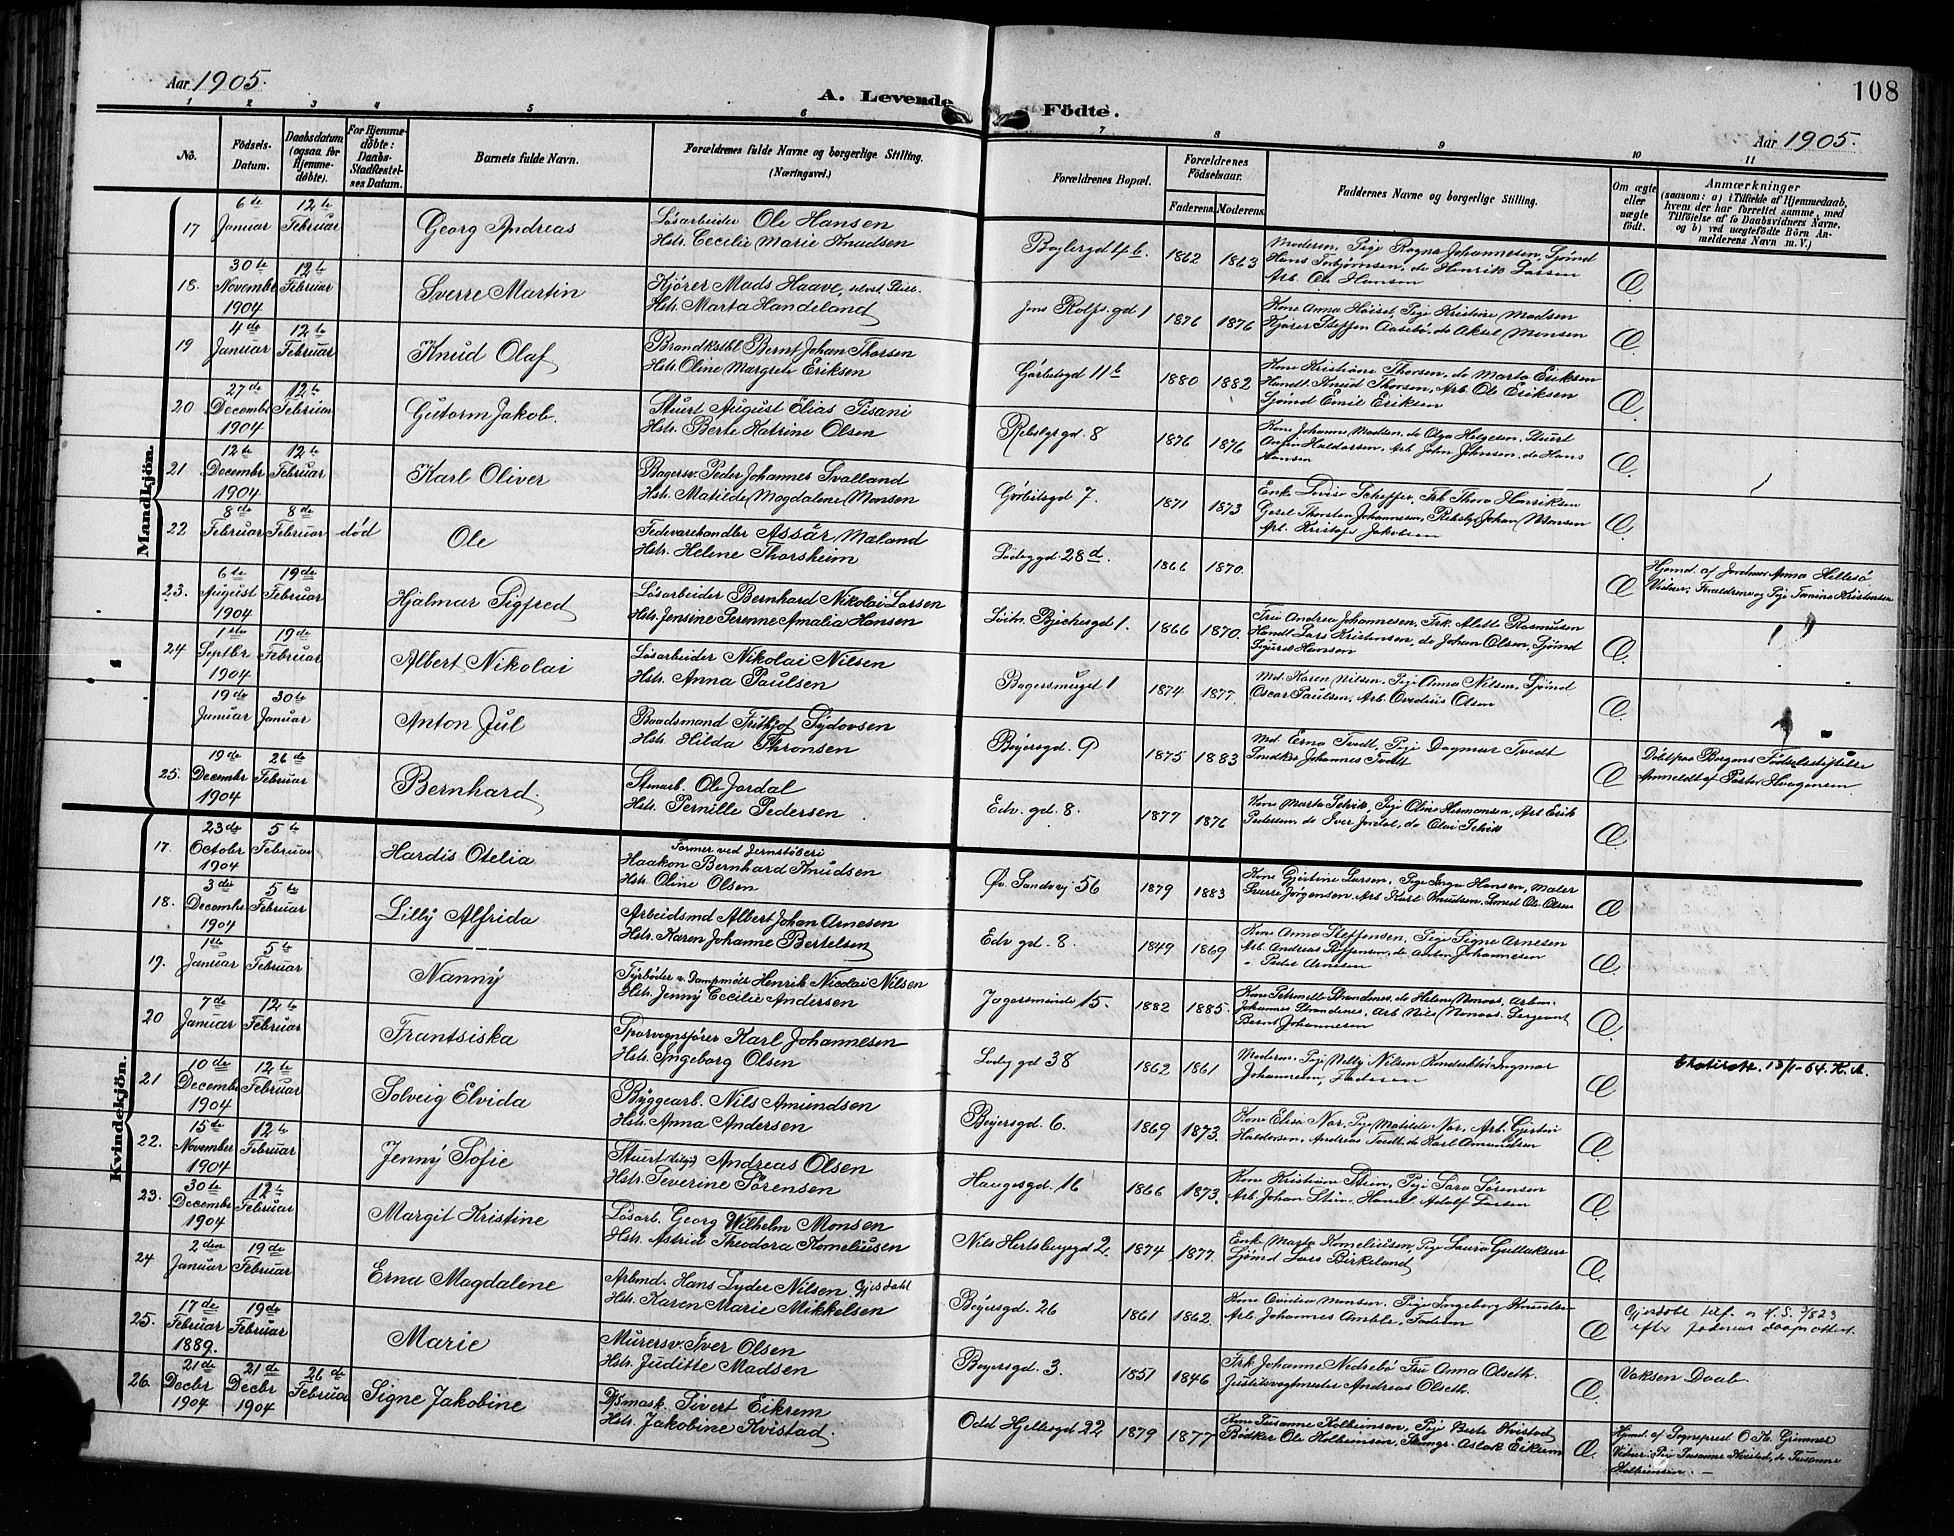 Aar 1905.
A. Levende Födte.
108
Aar 1905.
1 2 3 4 5 6 7 8 9 10 11
No.
Födsels-
Datum.
Daabsdatum
(ogsaa for
Hjemme-
døbte).
For Hjemme-
døbte:
Daabs-
Stadfæstel-
ses Datum.
Barnets fulde Navn.
Forældrenes fulde Navne og borgerlige Stilling.
(Næringsvei.)
Forældrenes Bopæl.
Forældrenes
Födselsaar.
Faderens. Moderens.
Faddernes Navne og borgerlige Stilling.
Om ægte
eller
uægte
født.
Anmærkninger
(saasom: a) i Tilfælde af Hjemmedaab,
hvem der har forrettet samme, med
Tilföielse af to Daabsvidners Navne,
og b) ved uægtefödte Börn An-
melderens Navn m. V.)
Mandkjön.
17
6te Januar
12te Februar
Georg Andreas
Løsarbeider Ole Hansen
Hstr. Cecilie Marie Knudsen
1862 1863
Moderen, Pige Ragna Johannesen, Sjømd
Hans Torbjørnsen, do Henrik Larsen
Arb. Ole Hansen
Æ
18.
30te Novembr 1904
12te Februar
Sverre Martin
Kjører Mads Haave,
Hstr. Marta Handeland
Jens Rolfs. gd 1
1876 1876
Kone Anna Høiset, Pige Kristine Madsen
Kjører Steffen Aasebø, do Aksel Monsen
Æ
19
4de Januar
12te Februar
Knud Olaf
Brandkstbl Bernt Johan Thorsen
Hstr. Oline Margrete Eriksen
1880 1882
Kone Kristiane Thorsen, do Marta Eriksen
Handl. Knud Thorsen, Arb. Ole Eriksen
Sjømd Emil Eriksen
Æ
20
27de Decembr 1904
12te Februar
Gutorm Jakob.
Stuert August Elias Pisani
Hstr. Berte Katrine Olsen
1876 1876
Kone Johanne Madsen, do Olga Helgesen, Stuert
Haldorsen, Arb John Johnsen, do Hans
Hansen
Æ
21
12te Decembr 1904
12te Februar
Karl Oliver
Bagersv. Peder Johannes Svalland
Hstr. Matilde Magdalene Monsen
7.
1871 1873
Æ
22
8de Februar
8de Februar
død
Ole
Fedevarehandler Assar Mæland
Hstr. Helene Thorsheim
28d.
1866 1870.
Æ
Hjemd. af Jordmor Anna Hillesø
Vidner, Forældrene og Pige
23.
6te August 1904
19de Februar
Hjalmar Sigfred
Løsarbeider Bernhard Nikolai Larsen
Hstr. Jensine Serenne Amalia Hansen
1866 1870.
Fru Andrea Johannesen, Frk. Rasmussen
Handl Lars Kristensen, do Johan Olsen, Sjømd
Sigurd Hansen
Æ
24
1ste Septbr 1904
19de Februar
Albert Nikolai
Løsarbeider Nikolai Nilsen
Hstr. Anna Paulsen
1874 1877.
Mod. Karen Nilsen, Pige Anna Nilsen, Sjømd
Oscar Paulsen, Arb. Ovidius Olsen
Æ
19de Januar
30te Januar
Anton Jul
Baadsmand Frithjof Sydovsen
Hstr. Hilda Thronsen
Beyersgd. 9
1875 1883
Mod. Erna Tvedt, Pige Dagmar Tvedt
Snedker Johannes Tvedt
Æ
Døbt paa Bergens Fødselsstiftelse
Anmeldt af Pastor
25.
19de Decembr 1904
26de Februar
Bernhard.
Stenarb. Ole Jordal
Hstr. Pernille Pedersen
Edv. gd. 8.
1877 1876
Kone Marta Selvik, Pige Oline Hermansen, Arb Erik
Pedersen, do Iver Jordal, do Olai Selvik
Æ
Kvindekjön.
17.
23de Octobr 1904
5te Februar
Hardis Otelia
Former ved Jernstøberi
Haakon Bernhard Knudsen
Hstr. Oline Olsen
Øv. Sandvig 56
1879 1883
Kone Gjertine Larsen, Pige Inga Hansen, Maler
Sverre Jørgensen, Arb Karl Knudsen, Smed Ole Olsen
Æ
18.
3die Decembr 1904
5te Februar
Lilly Alfrida
Arbeidsmd Albert Johan Arnesen
Hstr. Karen Johanne Bertelsen
Edv gd. 8.
1849 1869
Kone Anna Steffensen, Pige Signe Arnesen
Arb. Andreas Steffensen, do Anton Johannesen
" Peder Arnesen
Æ
19.
1ste Januar
5te Februar
Nanny
Fyrbøder v. Dampmølle Henrik Nicolai Nilsen
Hstr. Jenny Cecilie Andersen
15.
1882 1885.
Johannes Strandenes, Arb Nils Monsos, Sergeant
Bernt Johannesen
Æ
20
7de Januar
12te Februar
Frantsiska
Sporvognsfører Karl Johannesen
Hstr. Ingeborg Olsen
38
1862 1861
Moderen, Pige Nelly Nilsen, Konduktør Ingmar
Johannesen, Faderen
Æ
21
10de Decembr 1904
12te Februar
Solveig Elvida
Byggearb. Nils Amundsen
Hstr. Anna Andersen
Beyersgd. 6.
1869 1873.
Kone Elisa Nor, Pige Matilde Nor, Arb. Gjertin
Haldorsen, Andreas Tvedt, do Karl Amundsen
Æ
22.
15de Novembr 1904
12te Februar
Jenny Sofie
Stuert Andreas Olsen
Hstr. Severine Sørensen
Haugesgd. 16
1866 1873.
Kone Kristiane Stien, Pige Sara Sørensen
Arb. Johan Stien, Handl Adolf Larsen
Æ
23.
30te Decembr 1904
12te Februar
Margit Kristine
Løsarb. Georg Wilhelm Monsen
Hstr. Astrid Theodora Korneliusen
Nils Hertsbergsgd 2.
1874 1877.
Enk. Marta Korneliusen, Pige Laura Gullaksen
Sjømd Lars Birkeland
Æ
24
2den Januar
19de Februar
Erna Magdalene
Arbmd. Hans Lyder Nilsen Gjesdahl
Hstr. Karen Marie Mikkelsen
Beyersgd. 26
1861 1862.
Kone Ovidia Monsen, Pige Ingeborg Knudsen
Arb. Johannes Amble, Faderen
Æ
25.
17de Februar 1889.
19de Februar
Marie
Murersv. Iver Olsen
Hstr. Juditte Madsen
Beyersgd. 3.
1851 1846
Frk. Johanne Nedrebø, Fru Anna Olseth.
Justitsvagtmester Andreas Olseth.
Æ
Voksen Daab.
26.
21de Decbr 1904
21de Decbr 1904
26de Februar
Signe Jakobine
D/Smask. Sivert Eikrem
Hstr. Jakobine Kvistad.
Odd Hjeltesgd 22
1879 1877
Kone Susanne Kolbeinsen, Pige Berte Kvistad
Bødker Ole Kolbeinsen, Aslak Eikrem
Æ
Hjemd. af Sognepræst O. A. Grimnes
Vidner: Pige Susanne Kvistad, do Susanne
Kolbeinsen. —